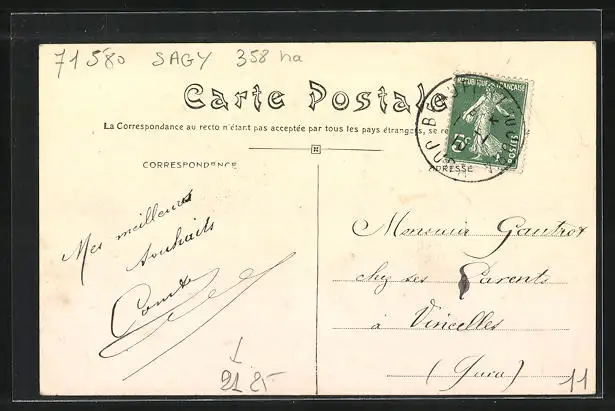 71580 SAGY 358 ha
Carte Postale
La Correspondance au recto n'étant pas acceptée par tous les pays étrangers, se re
REPUBLIQUE FRANÇAISE
5c
POSTES
CORRESPONDANCE
ADRESSE
Mes meilleurs
souhaits
Monsieur Gautrot
chez ses Parents
à Vincelles
(Jura)
21 25
11